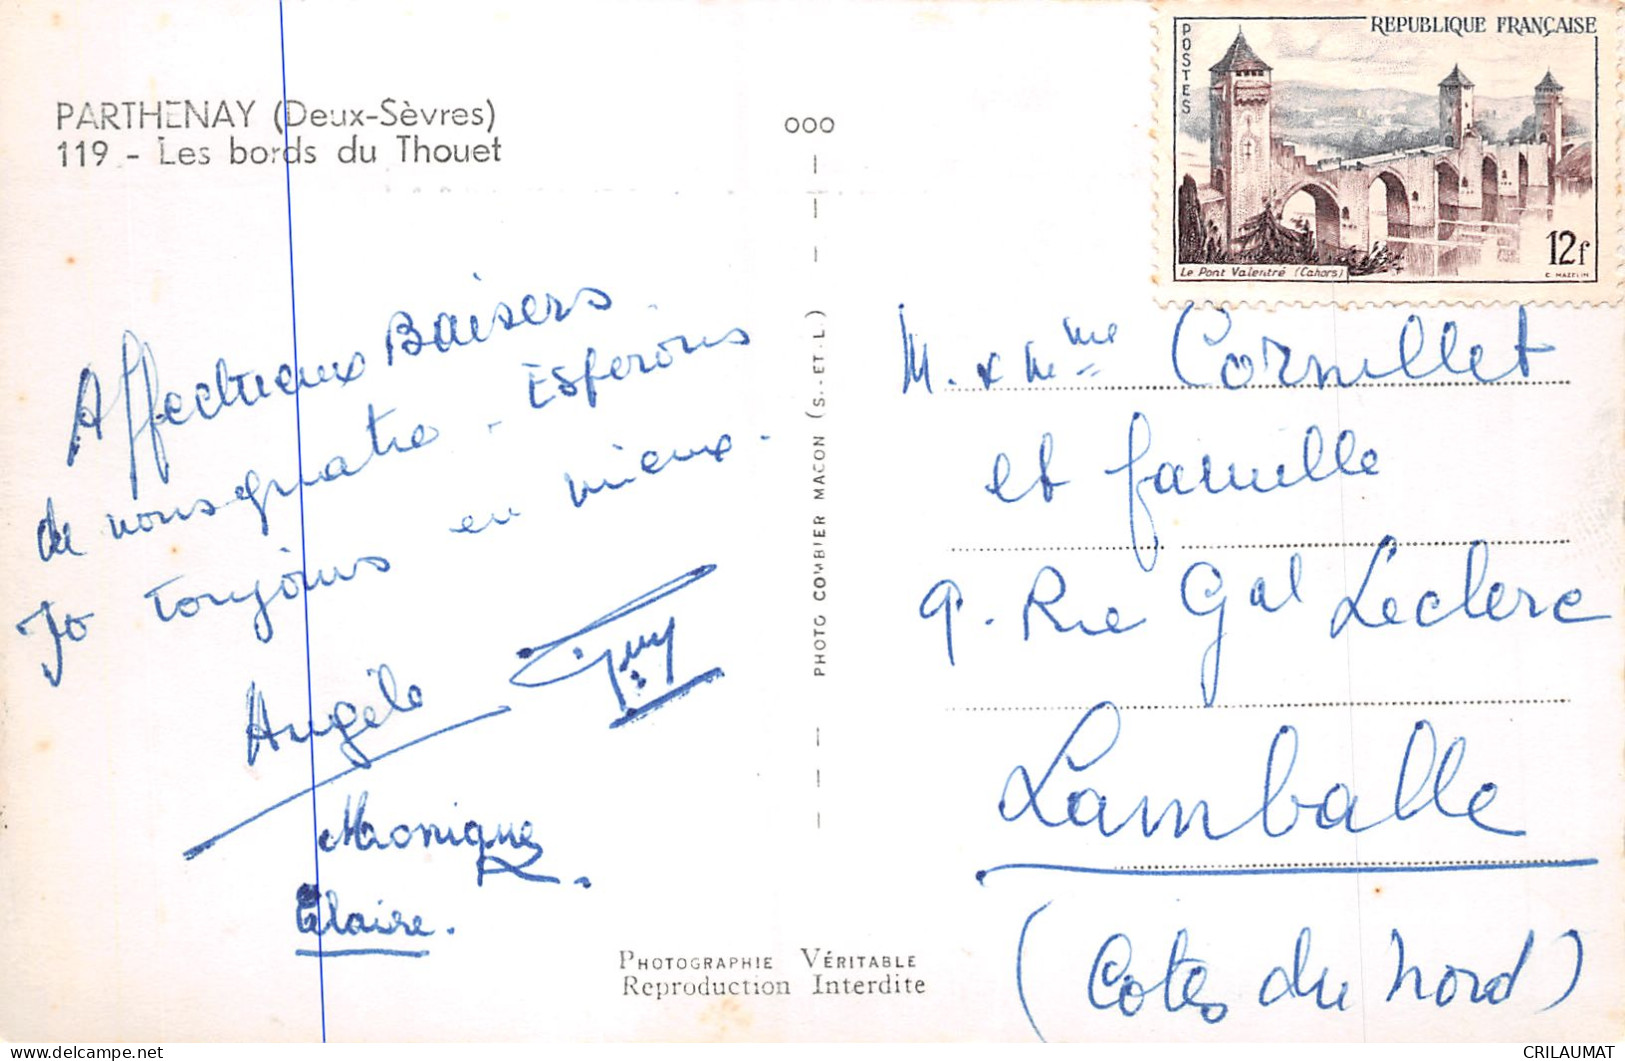 PARTHENAY (Deux-Sèvres)
119 - Les bords du Thouet
Affectueux Baisers
de nous quatre - Espérons
Jo toujours en mieux.
Angèle Guy
Monique.
Claire.
PHOTOGRAPHIE VÉRITABLE
Reproduction Interdite
000
PHOTO COMBIER MACON (S.-ET-L.)
POSTES
REPUBLIQUE FRANÇAISE
Le Pont Valentré (Cahors)
12f
C. MAZELIN
M. & Mme Cornillet
et famille
9. Rue Gal Leclerc
Lamballe
(Cotes du Nord)
CRILAUMAT